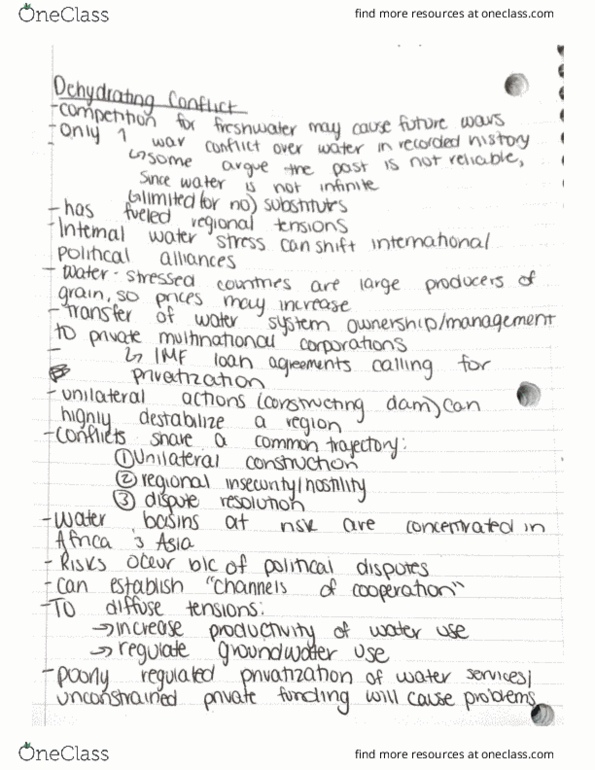 OneClass
find more resources at oneclass.com
Dehydrating Conflict
-competition for freshwater may cause future wars
-Only 1 war conflict over water in recorded history
-
↳some argue the past is not reliable,
since water is not infinite
↳limited (or no) substitutes
-has fueled regional tensions
-Internal water stress can shift international
political alliances
-Water-stressed countries are large producers of
grain, so prices may increase
-Transfer of water system ownership/management
to private multinational corporations
-
↳ IMF loan agreements calling for
privatization
-unilateral actions (constructing dam) can
highly destabilize a region
-Conflicts share a common trajectory:
① Unilateral construction
② regional insecurity/hostility
③ dispute resolution
-Water basins at risk are concentrated in
Africa & Asia
-Risks occur b/c of political disputes
-can establish "channels of cooperation"
-To diffuse tensions:
→increase productivity of water use
→ regulate groundwater use
-poorly regulated privatization of water services/
unconstrained private funding will cause problems
OneClass
find more resources at oneclass.com